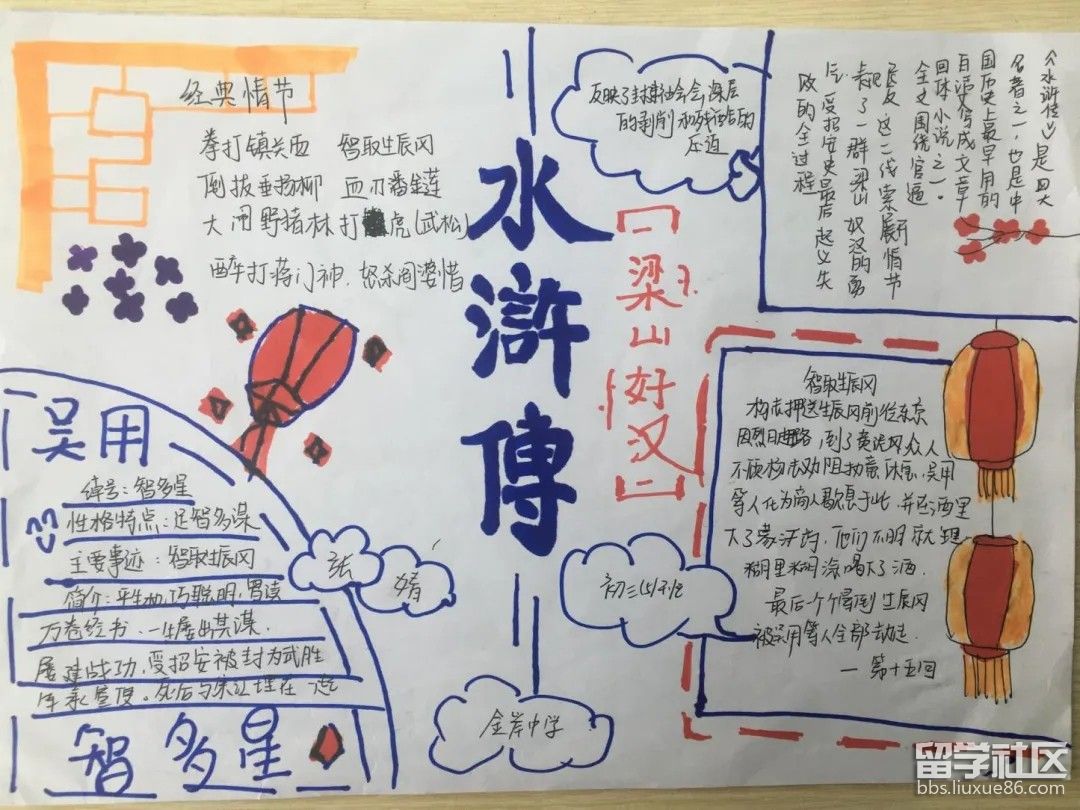 经典情节
拳打镇关西 智取生辰冈
倒拔垂扬柳 血刃番金莲
大闹野猪林 打虎(武松)
醉打蒋门神. 怒杀阎婆惜
水滸傳
【梁山好汉】
反映了封建社会会深层
的剥削和残
压迫
《水浒传》是四大
名著之一,也是中
国历史上最早用的
白话文写成文章
回体小说之一。
全文围绕官逼
民反这一线索展开情节
表现了一群梁山好汉
受招安史最后起义失
败的全过程
吴用
绰号:智多星
性格特点:足智多谋
主要事迹:智取生辰冈
简介:平生机巧聪明,曾读
万卷经书.一生屡出
屡建战功,受招安被封为武胜
军承宣使。死后与宋江埋在一起
智多星
张
婧
初三
金岸中学
智取生辰冈
杨志押送生辰冈前位东京
因烈日,到了黄泥冈众人
不顾杨志劝阻执意休息,吴用
等人化为商人歇息于此,并在酒里
大了蒙汗药,他们不明就理
糊里糊涂喝下了酒.
最后个个晕倒生辰冈
被吴用等人全部劫走.
一 第十五回
留学社区
bbs.liuxue86.com